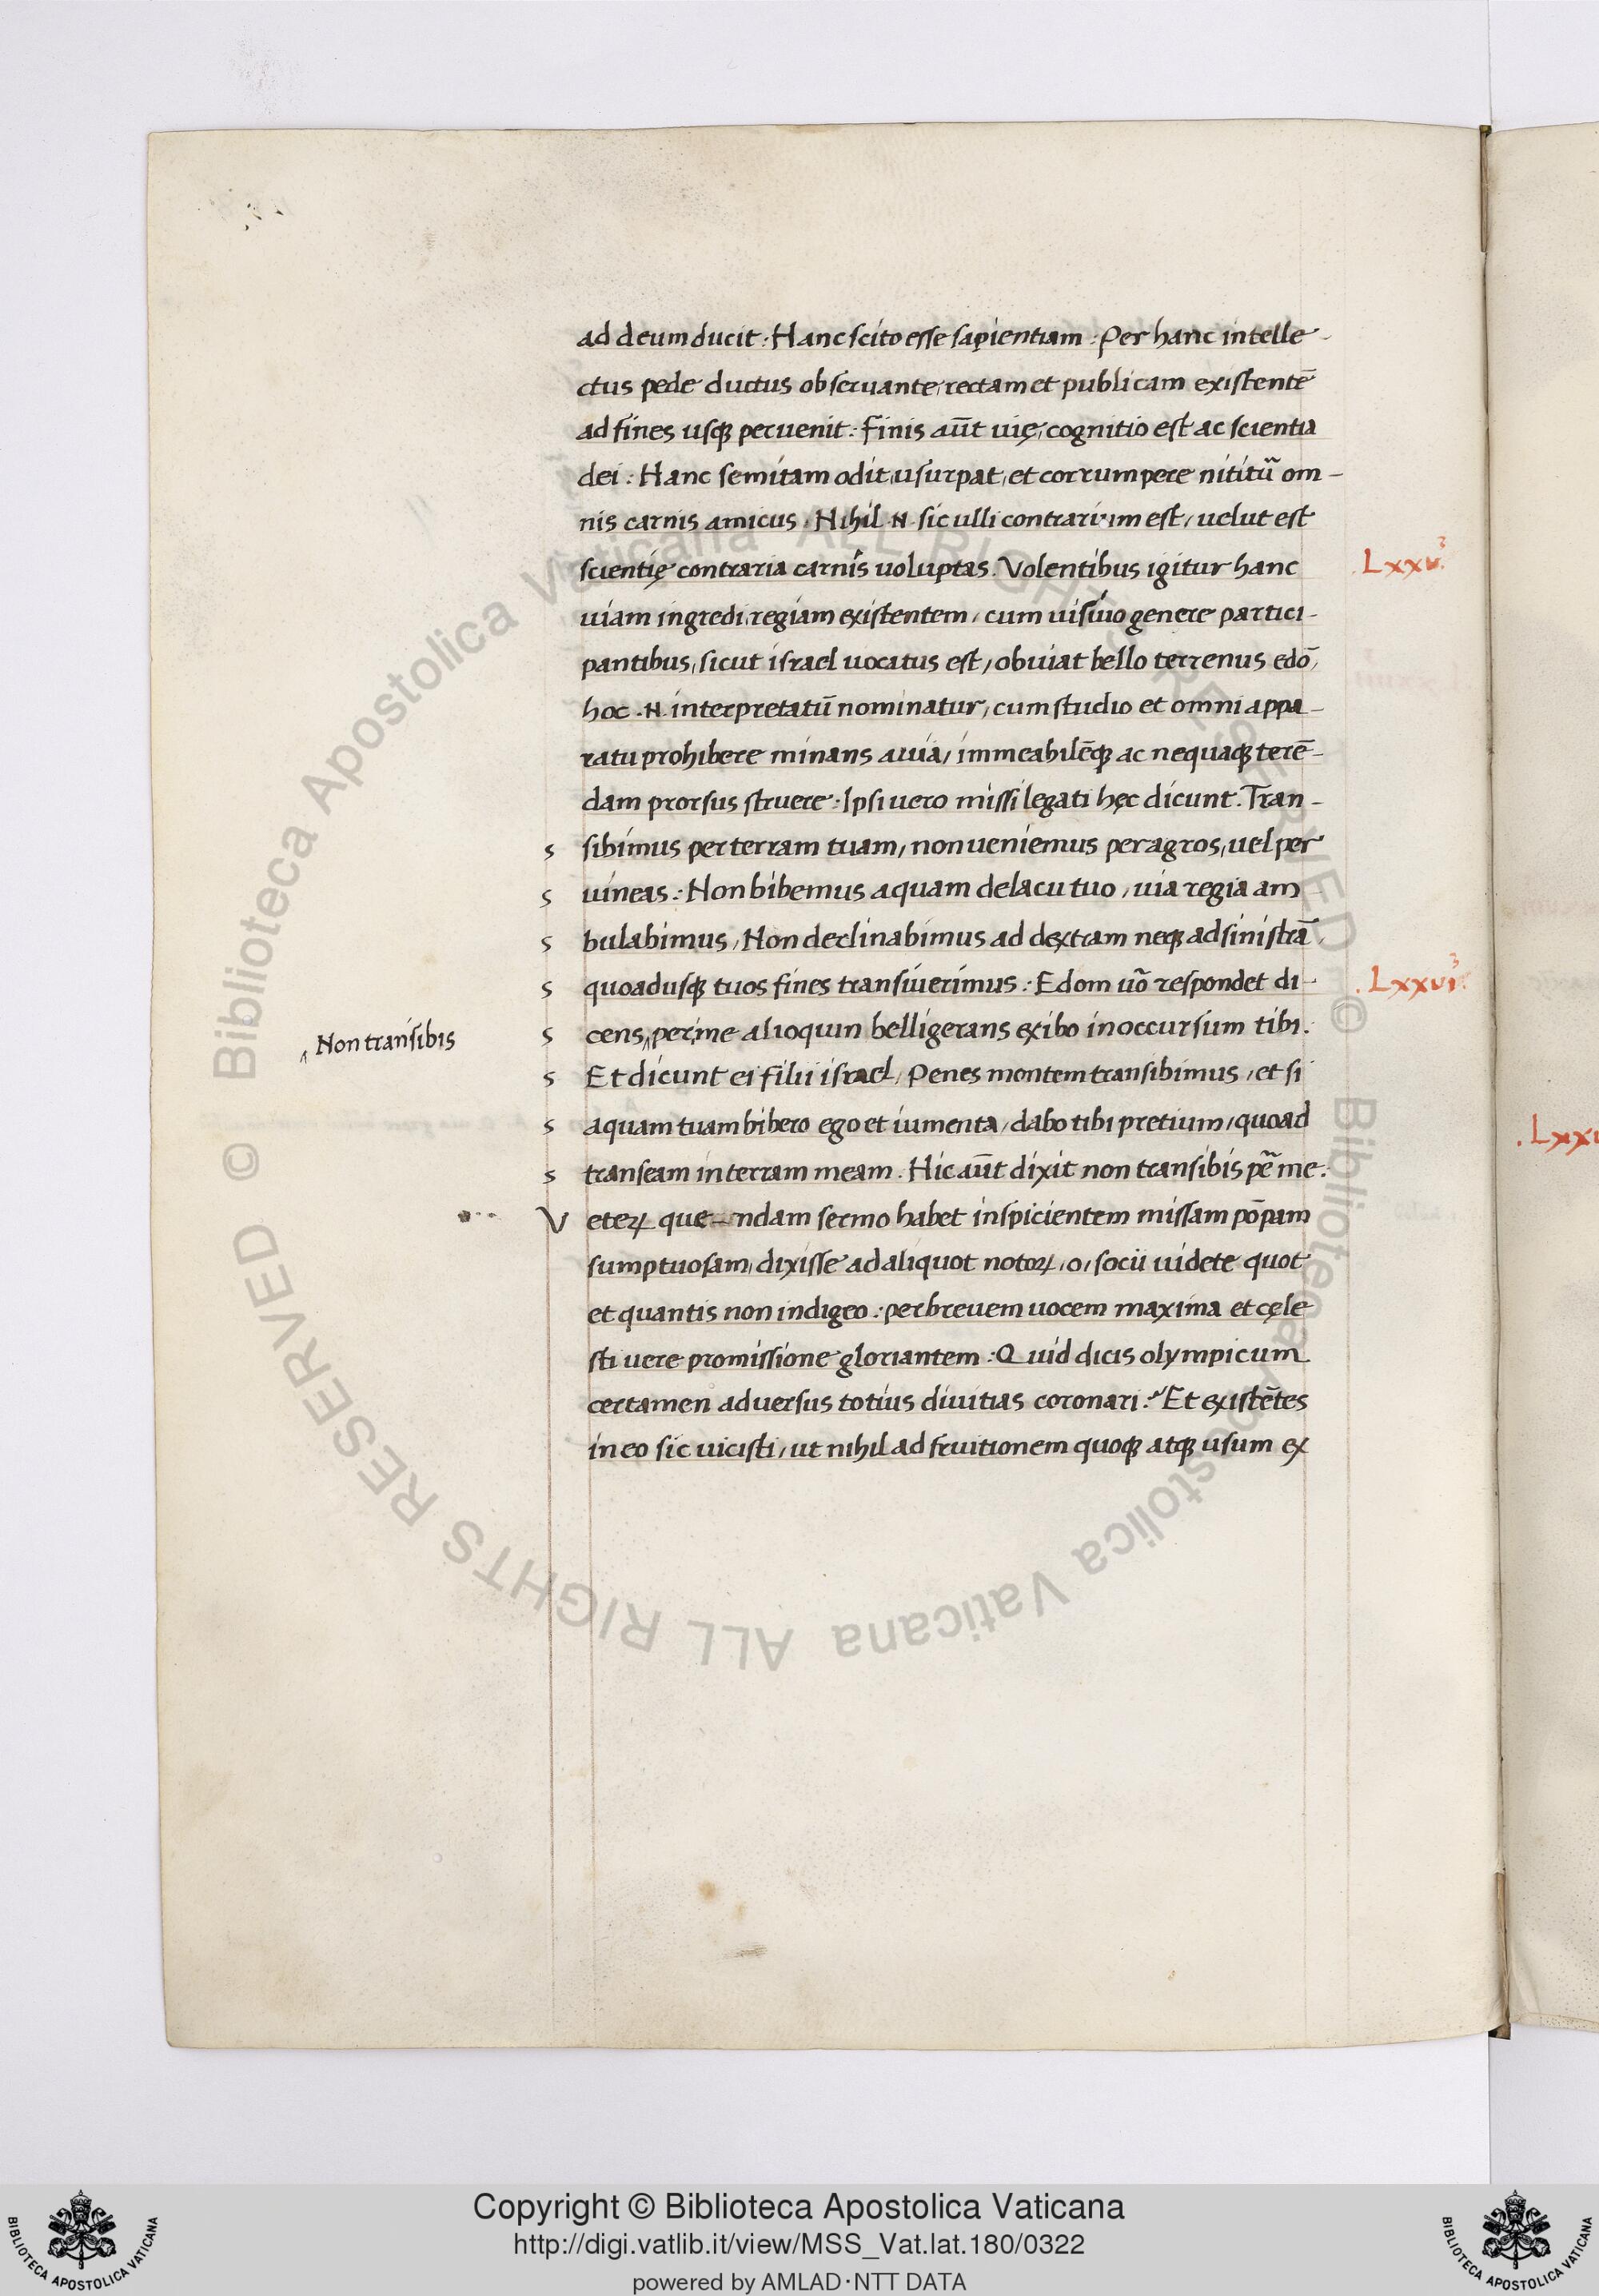 ad deum ducit : Hanc scito esse sapientiam : Per hanc intelle-
ctus pede ductus obseruante, rectam et publicam existentē
ad fines usq; peruenit : Finis aūt uię, cognitio est ac scientia
dei : Hanc semitam odit, usurpat, et corrumpere nititũ om-
nis carnis amicus . Nihil .N. sic ulli contrarium est, uelut est
scientię contraria carnis uoluptas. Volentibus igitur hanc
.Lxxv.³
uiam ingredi, regiam existentem, cum uisiuo genere partici-
pantibus, sicut israel uocatus est, obuiat bello terrenus edō,
hoc .N. interpretatū nominatur, cum studio et omni appa-
ratu prohibere minans a uia, immeabilēq; ac nequaq; terē-
dam prorsus struere : Ipsi uero missi legati hęc dicunt. Tran-
s sibimus per terram tuam, non ueniemus per agros, uel per
s uineas : Non bibemus aquam de lacu tuo, uia regia am
s bulabimus, Non declinabimus ad dextram neq; ad sinistrā,
s quoadusq; tuos fines transiuerimus : Edom uō respondet di-
.Lxxvi.³
‸ Non transibis
s cens‸ per me alioquin belligerans exibo in occursum tibi.
s Et dicunt ei filii israel, Penes montem transibimus, et si
s aquam tuam bibero ego et iumenta, dabo tibi pretium, quoad
s transeam in terram meam. Hic aūt dixit non transibis pẽ me:
V eteꝝ que-ndam sermo habet inspicientem missam pōpam
.Lxxv
sumptuosam, dixisse ad aliquot notoꝝ, o, socii uidete quot
et quantis non indigeo : per breuem uocem maxima et cęle
sti uere promissione gloriantem : Quid dicis olympicum
certamen aduersus totius diuitias coronari : Et existētes
in eo sic uicisti, ut nihil ad fruitionem quoq; atq; usum ex
Copyright © Biblioteca Apostolica Vaticana
http://digi.vatlib.it/view/MSS_Vat.lat.180/0322
powered by AMLAD·NTT DATA
BIBLIOTECA APOSTOLICA VATICANA
BIBLIOTECA APOSTOLICA VATICANA
© Biblioteca Apostolica Vaticana ALL RIGHTS RESERVED
© Biblioteca Apostolica Vaticana ALL RIGHTS RESERVED